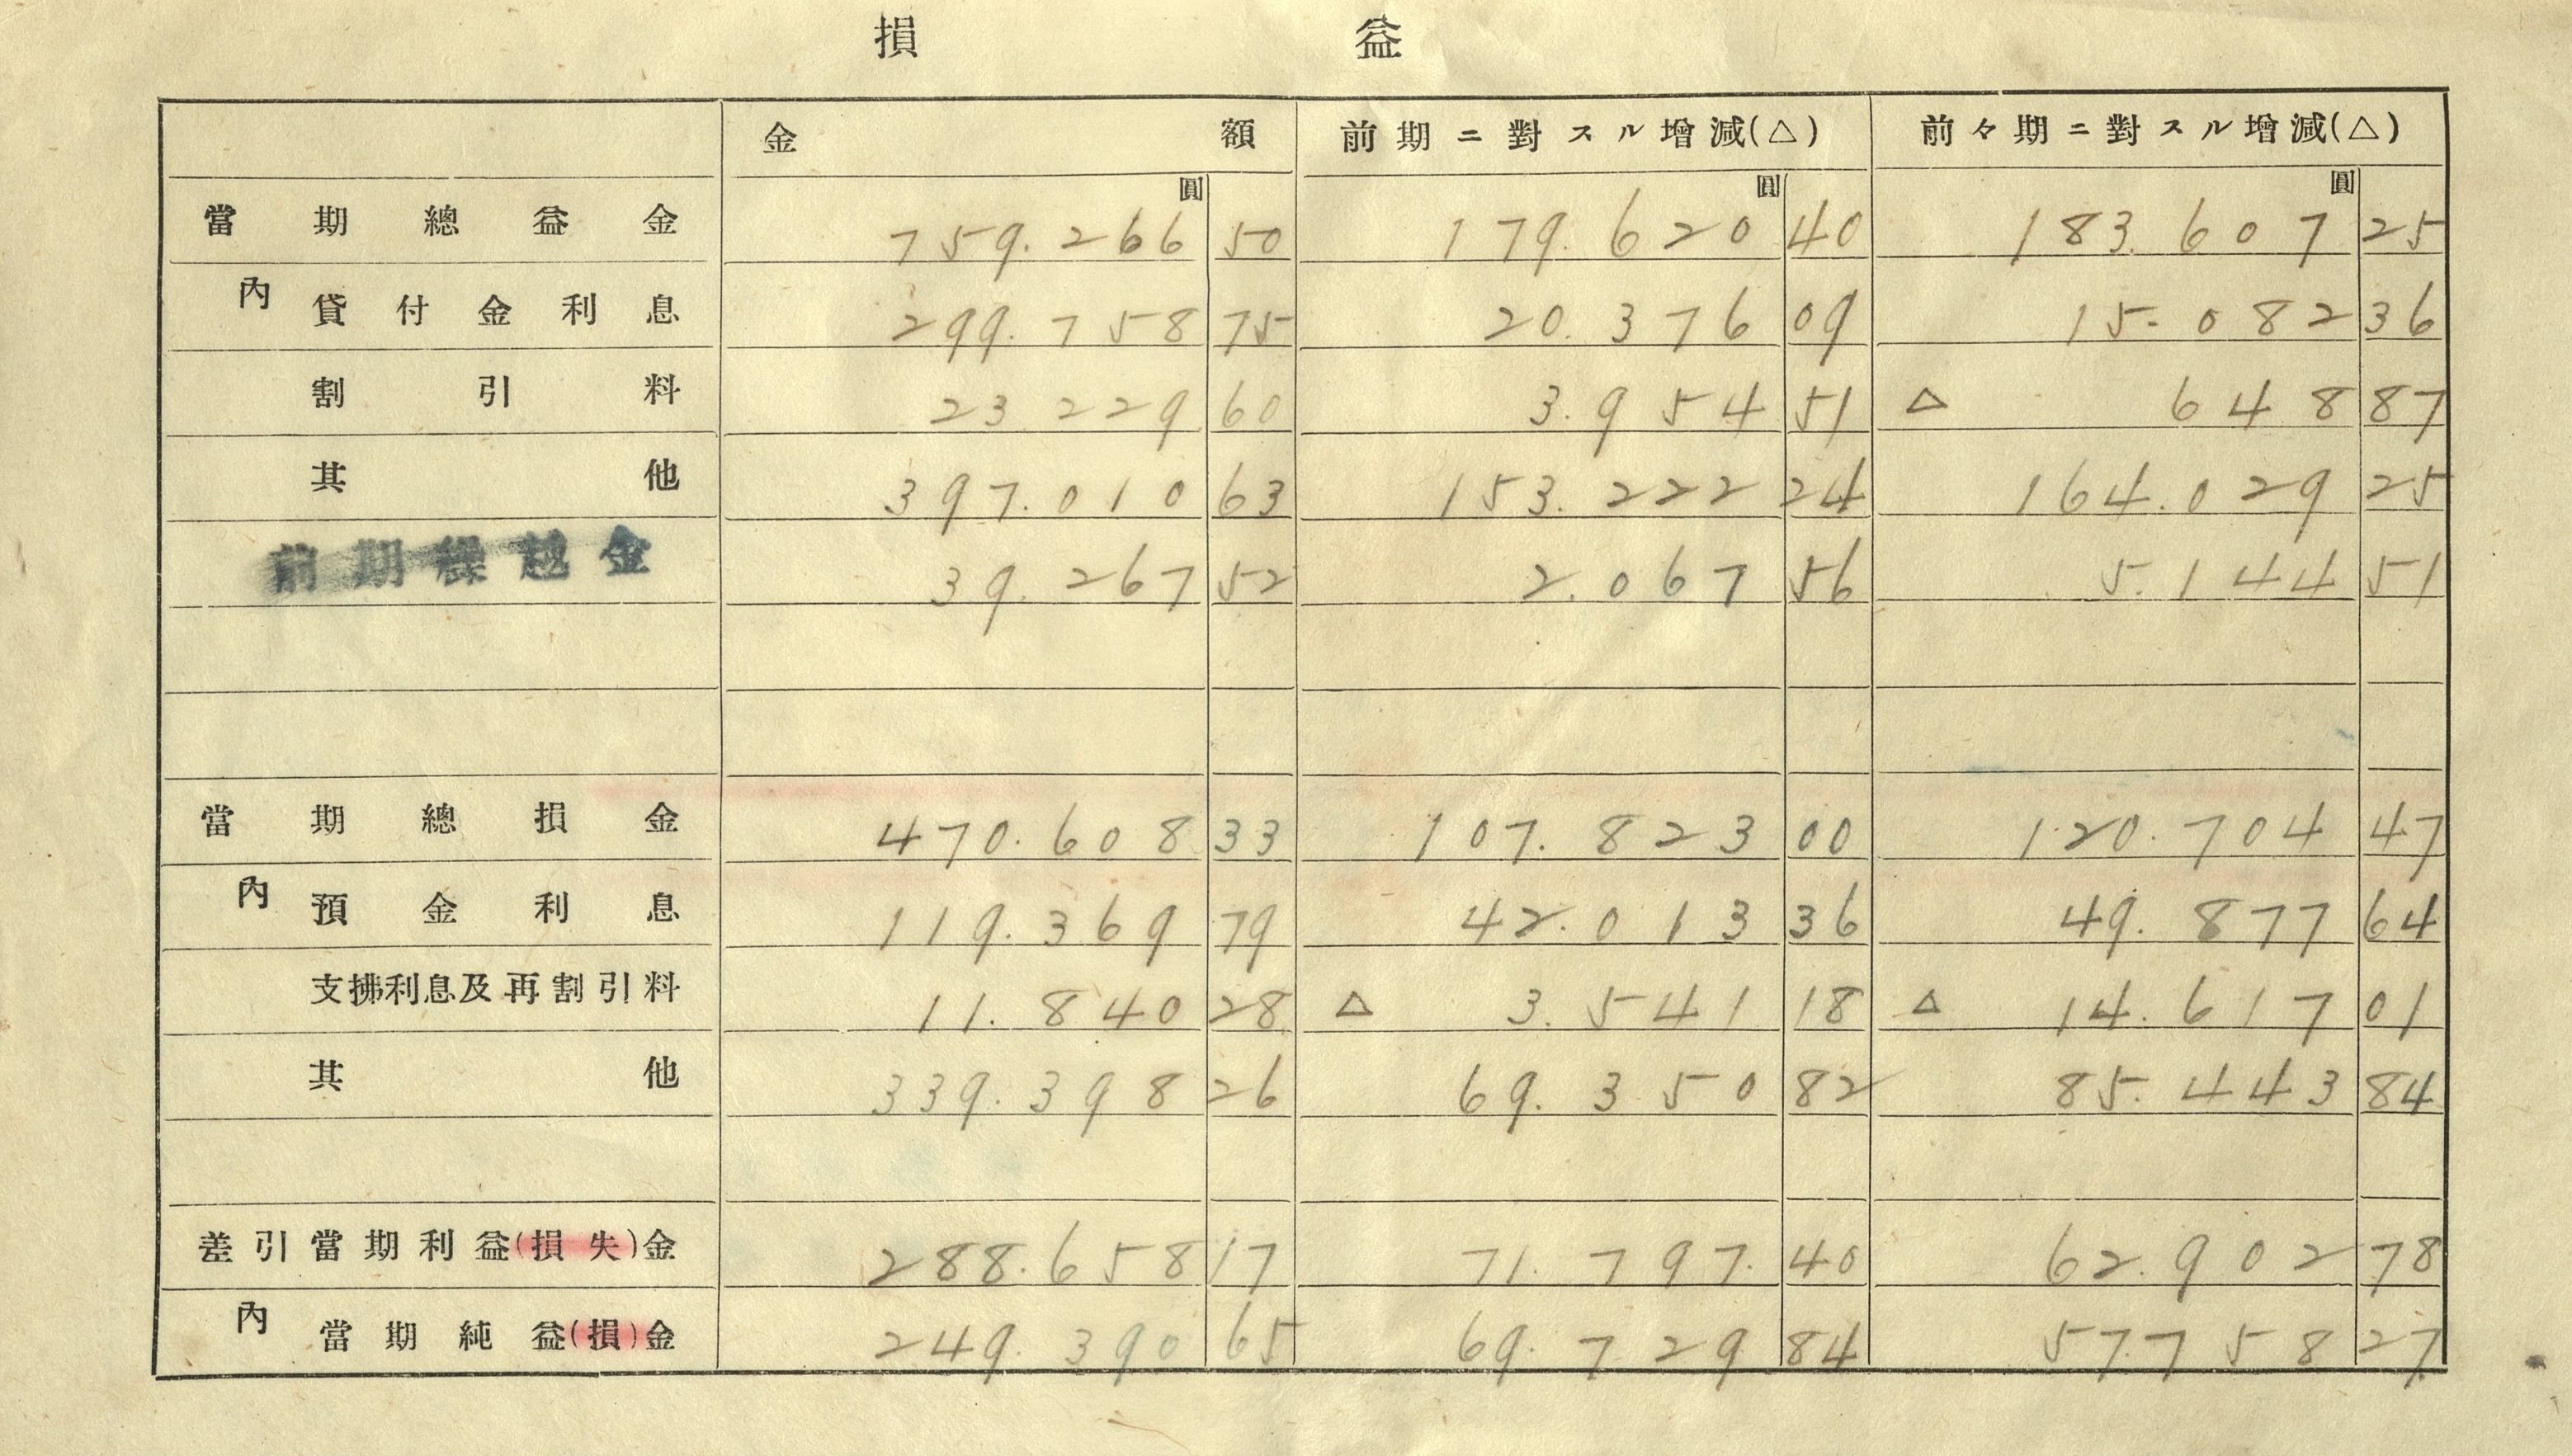 損 益
金 額 前期ニ對スル增減(△) 前々期ニ對スル增減(△)
圓 圓 圓
當期總益金 759.266 50 179.620 40 183.607 25
內 貸付金利息 299.758 75 20.376 09 15.082 36
割引料 23 229 60 3.954 51 △ 648 87
其他 397.010 63 153.222 24 164.029 25
前期繰越金 39.267 52 2.067 56 5.144 51
當期總損金 470.608 33 107.823 00 120.704 47
內 預金利息 119.369 79 42.013 36 49.877 64
支拂利息及再割引料 11.840 28 △ 3.541 18 △ 14.617 01
其他 339.398 26 69.350 82 85.443 84
差引當期利益(損失)金 288.658 17 71.797. 40 62.902 78
內 當期純益(損)金 249.390 65 69.729 84 57.758 27